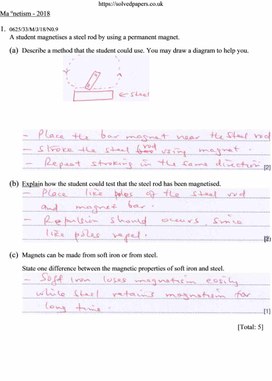 https://solvedpapers.co.uk
Ma netism - 2018
1. 0625/33/M/J/18/N0.9
A student magnetises a steel rod by using a permanent magnet.
(a) Describe a method that the student could use. You may draw a diagram to help you.
← Steel
- Place the bar magnet near the steel rod
- Stroke the steel rod using magnet.
- Repeat stroking in the same direction
[2]
(b) Explain how the student could test that the steel rod has been magnetised.
- Place like poles of the steel rod
and magnet bar.
- Repulsion should occurs since
like poles repel.
[2]
(c) Magnets can be made from soft iron or from steel.
State one difference between the magnetic properties of soft iron and steel.
- Soft iron loses magnetism easily
while steel retains magnetism for
long time.
[1]
[Total: 5]